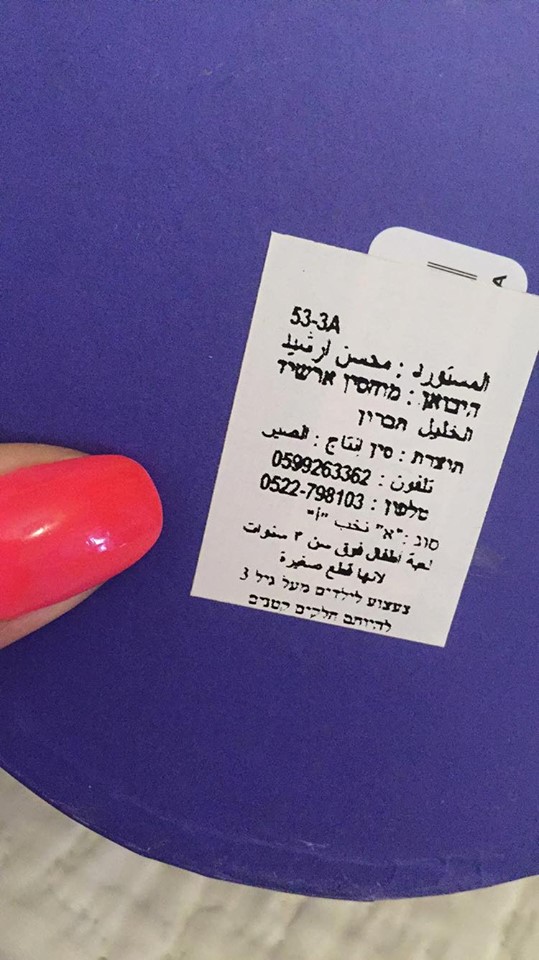 A
53-3A
المستورد : محسن ارشيد
היבואן : מוחסין ארשיד
الخليل חברון
תוצרת : סין إنتاج : الصين
تلفون : 0599263362
טלפון : 0522-798103
סוג :"א" نخب "أ"
لعبة اطفال فوق سن ٣ سنوات
لانها قطع صغيرة
צעצוע לילדים מעל גיל 3
להיותם חלקים קטנים